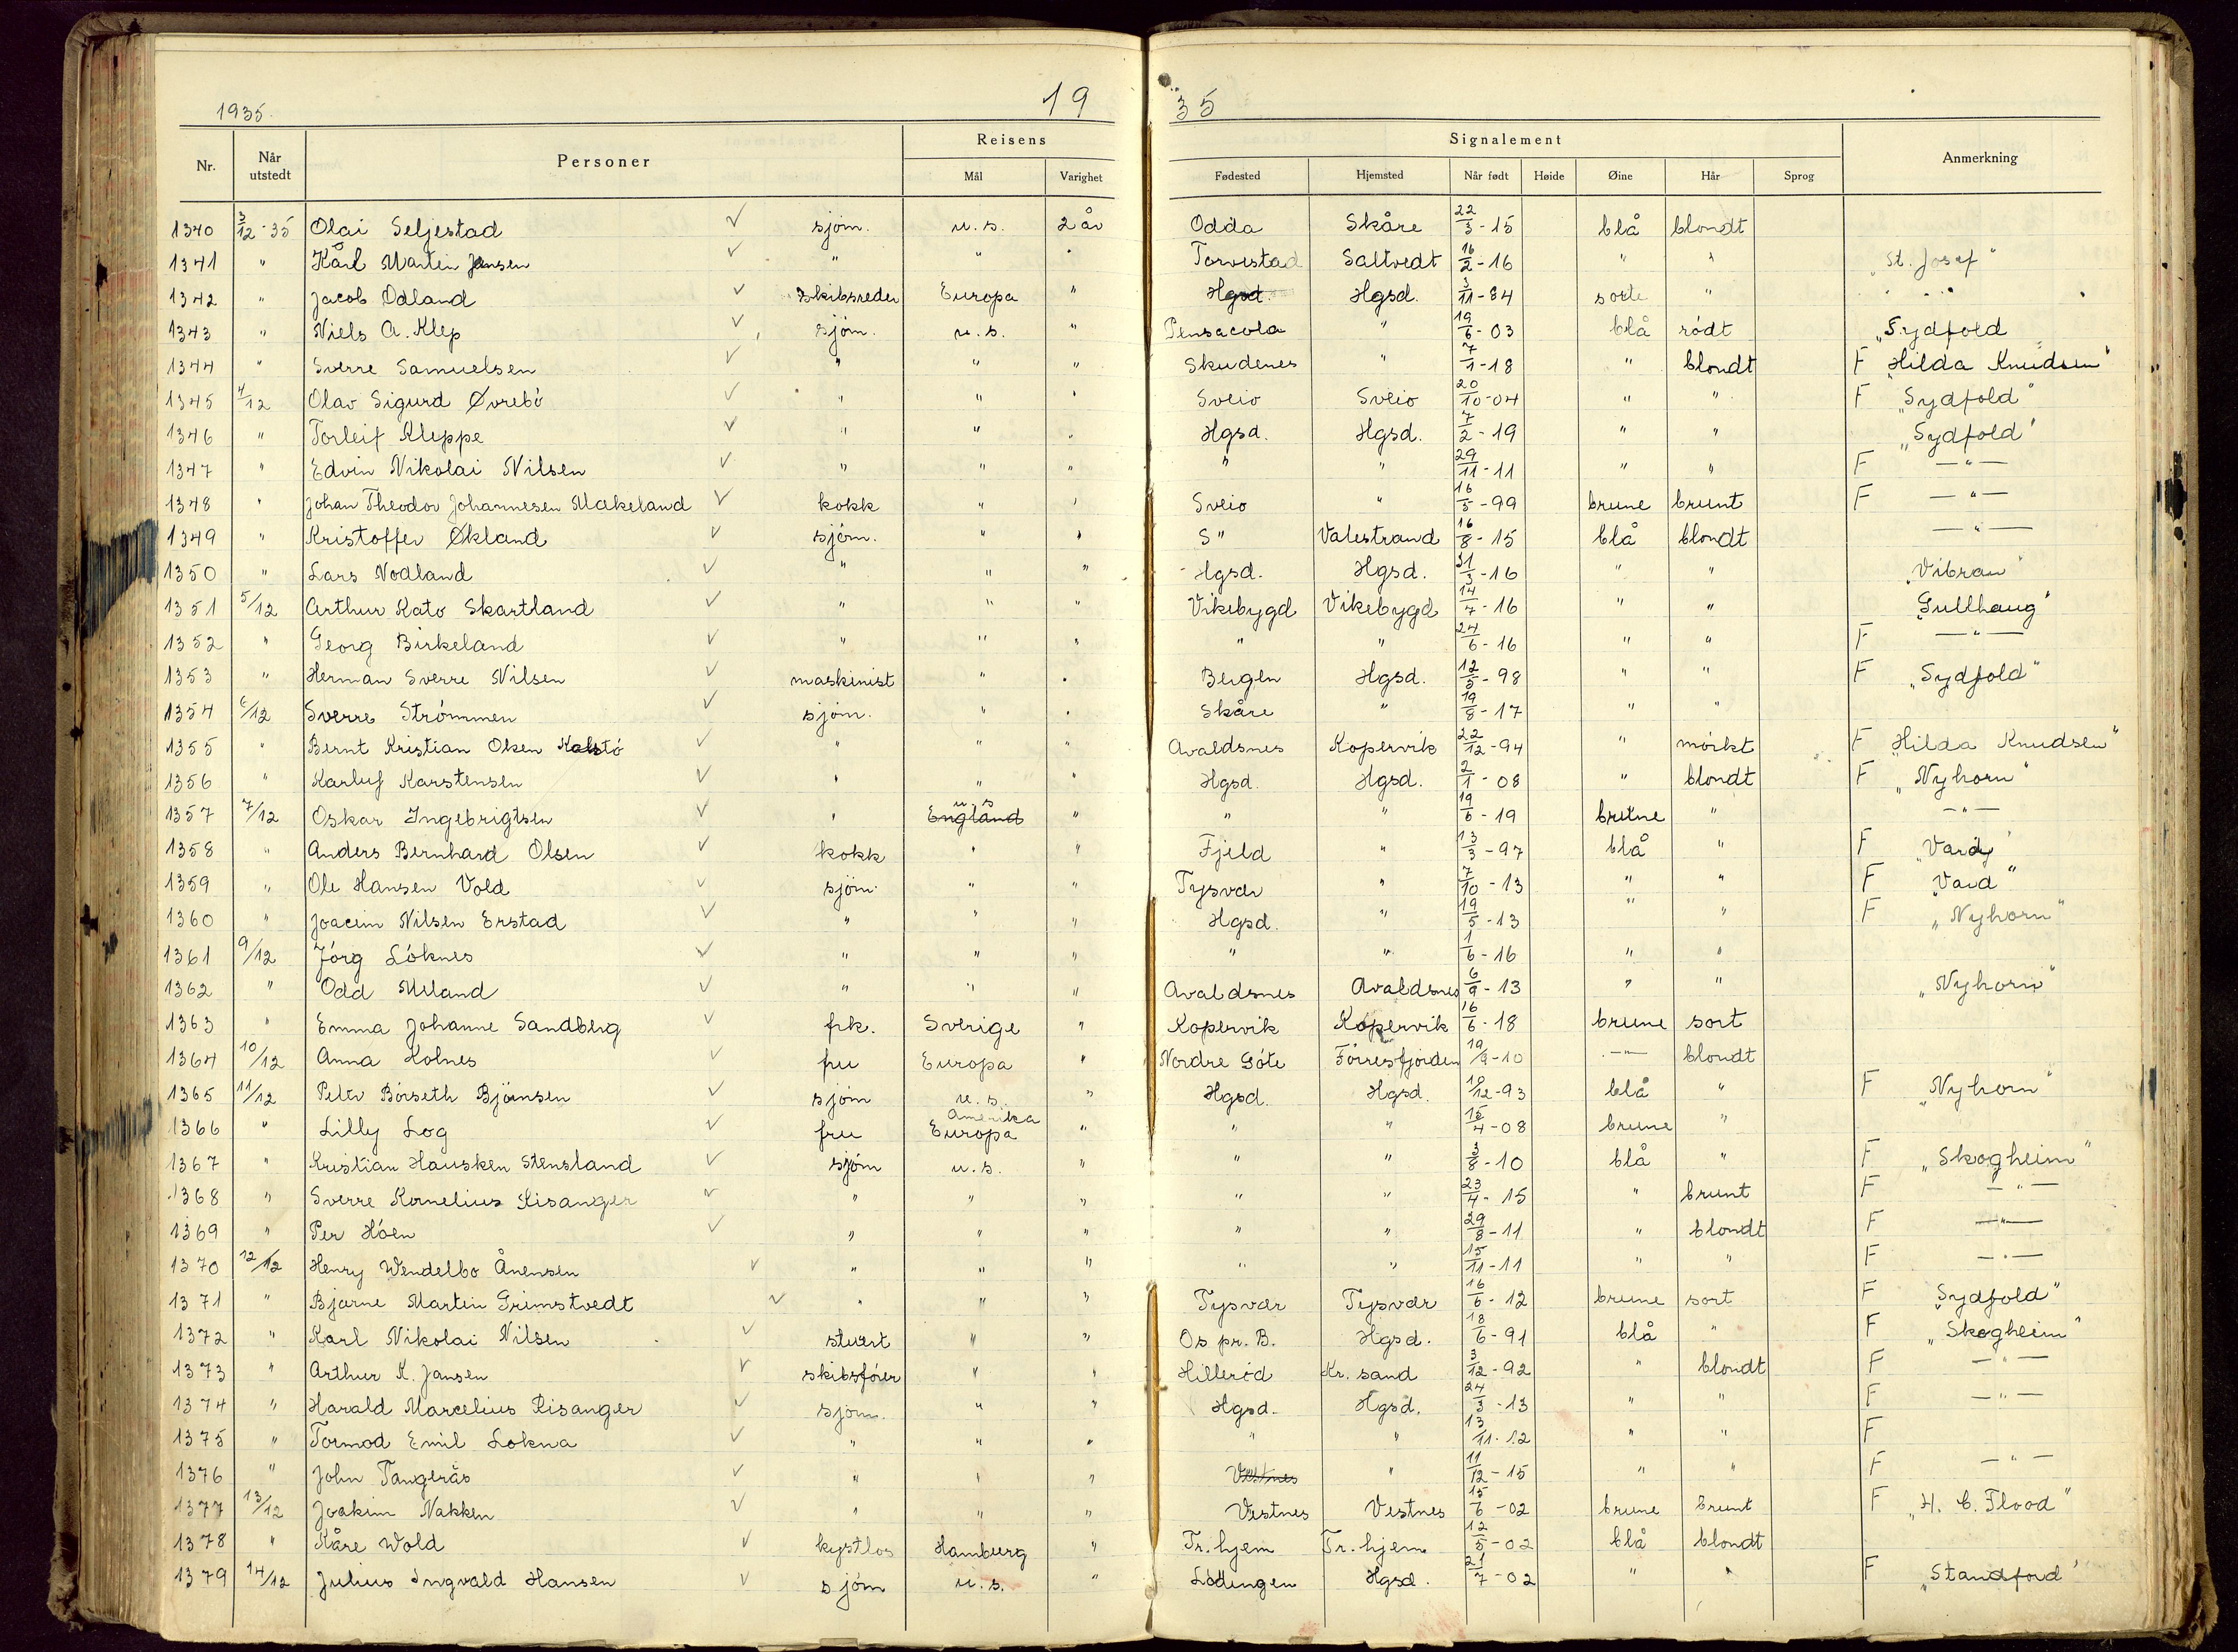 1935. 19 35
Reisens Signalement
Nr. Når utstedt Personer Mål Varighet Fødested Hjemsted Når født Høide Øine Hår Sprog Anmerkning
1340 3/12-35 Olai Seljestad ✓ sjøm. u.s. 2 år Odda Skåre 22/3-15 blå blondt
1341 " Kårl Martin Jensen ✓ " " " Torvestad Saltvedt 16/2-16 " " "St. Josef"
1342 " Jacob Odland ✓ skibsreder Europa " Hgsd. Hgsd. 3/11-84 sorte "
1343 " Niels A. Klep ✓ sjøm. u.s. " Pensacola " 19/6-03 blå rödt "Sydfold
1344 " Sverre Samuelsen ✓ " " " Skudenes " 7/1-18 " blondt F "Hilda Knudsen"
1345 4/12 Olav Sigurd Øvrebö ✓ " " " Sveio Sveio 20/10-04 " " F "Sydfold"
1346 " Torleif Kleppe ✓ " " " Hgsd. Hgsd. 7/2-19 " " "Sydfold"
1347 " Edvin Nikolai Nilsen ✓ " " " " " 29/11-11 " " F — " —
1348 " Johan Theodor Johannesen Mækeland ✓ kokk " " Sveio " 16/5-99 brune brunt F — " —
1349 " Kristoffer Økland ✓ sjøm. " " S" Valestrand 16/8-15 blå blondt — " —
1350 " Lars Nodland ✓ " " " Hgsd. Hgsd. 31/3-16 " " "Vibran"
1351 5/12 Arthur Kato Skartland ✓ " " " Vikebygd Vikebygd 14/7-16 " " "Gullhaug"
1352 " Georg Birkeland ✓ " " " " " 24/6-16 " " F — " —
1353 " Herman Sverre Nilsen ✓ maskinist " " Bergen Hgsd. 12/5-98 " " F "Sydfold"
1354 6/12 Sverre Strömmen ✓ sjøm. " " Skåre " 19/8-17 " "
1355 " Bernt Kristian Olsen Kalstö ✓ " " " Avaldsnes Kopervik 22/12-94 " mörkt F "Hilda Knudsen"
1356 " Karluf Karstensen ✓ " " " Hgsd. Hgsd. 2/1-08 " blondt F "Nyhorn"
1357 7/12 Oskar Ingebrigtsen ✓ " England u.s " " " 19/6-19 brune " — " —
1358 " Anders Bernhard Olsen ✓ kokk " " Fjeld " 13/3-97 blå " F "Vard"
1359 " Ole Hansen Vold ✓ sjøm. " " Tysvær " 7/10-13 " " F "Vard"
1360 " Joacim Nilsen Erstad ✓ " " " Hgsd. " 19/5-13 " " F "Nyhorn"
1361 9/12 Jörg Löknes ✓ " " " " " 1/6-16 " "
1362 " Odd Meland ✓ " " " Avaldsnes Avaldsnes 6/9-13 " " "Nyhorn"
1363 " Emma Johanne Sandberg ✓ frk. Sverige " Kopervik Kopervik 16/6-18 brune sort
1364 10/12 Anna Holnes ✓ fru Europa " Nordre Göte Förresfjorden 19/9-10 — " — blondt
1365 11/12 Peter Börseth Björnsen ✓ sjøm u.s. " Hgsd. Hgsd. 18/12-93 blå " F "Nyhorn"
1366 " Lilly Log ✓ fru Amerika Europa " " " 15/4-08 brune "
1367 " Kristian Hausken Stensland ✓ sjøm u.s. " " " 3/8-10 blå " F "Skogheim"
1368 " Sverre Kornelius Risanger ✓ " " " " " 23/4-15 " brunt F — " —
1369 " Per Höen ✓ " " " " " 29/8-11 " blondt F — " —
1370 12/12 Henry Wendelbo Ånensen ✓ " " " " " 15/11-11 " " F — " —
1371 " Bjarne Martin Grimstvedt ✓ " " " Tysvær Tysvær 16/6-12 brune sort F "Sydfold"
1372 " Karl Nikolai Nilsen ✓ stuert " " Os pr. B. Hgsd. 18/6-91 blå " F "Skogheim"
1373 " Arthur K. Jansen ✓ skibsförer " " Hilleröd Kr. sand 3/12-92 " blondt F — " —
1374 " Harald Marcelius Risanger ✓ sjøm. " " Hgsd. Hgsd. 24/3-13 " " F — " —
1375 " Tormod Emil Lokna ✓ " " " " " 13/11-12 " " F
1376 " John Tangerås ✓ " " " Vestnes " 11/12-15 " " F — " —
1377 13/12 Joakim Nakken ✓ " " " Vestnes Vestnes 15/6-02 brune brunt F "H. C. Flood"
1378 " Kåre Wold ✓ kystlos Hamburg " Tr.hjem Tr.hjem 12/5-02 blå blondt
1379 14/12 Julius Ingvald Hansen ✓ sjøm u.s. " Lödingen Hgsd. 21/7-02 " " F "Standford"